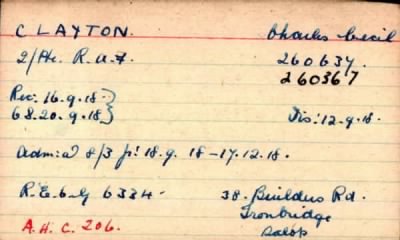 CLAYTON. Charles Cecil
2/Ac. R.A.F. 260637.
260367
Rec: 16.9.18.)
68.20.9.18) Dis: 12.9.18.
admi'd 8/3 fr: 18.9.18-17.12.18.
R.E.6.G 6334. 38. Builders Rd.
Ironbridge
Salop
A.H.C. 206.